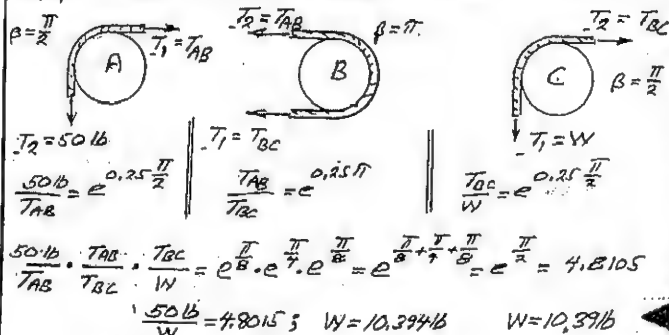 β = π/2 A T₁ = T_AB
T₂ = 50 lb
50 lb / T_AB = e^(0.25 π/2)
T₂ = T_AB β = π.
B
T₁ = T_BC
T_AB / T_BC = e^(0.25π)
T₂ = T_BC
C β = π/2
T₁ = W
T_BC / W = e^(0.25 π/2)
50 lb / T_AB · T_AB / T_BC · T_BC / W = e^(π/8) · e^(π/4) · e^(π/8) = e^(π/8 + π/4 + π/8) = e^(π/2) = 4.8105
50 lb / W = 4.8015; W = 10.394 lb W = 10.39 lb